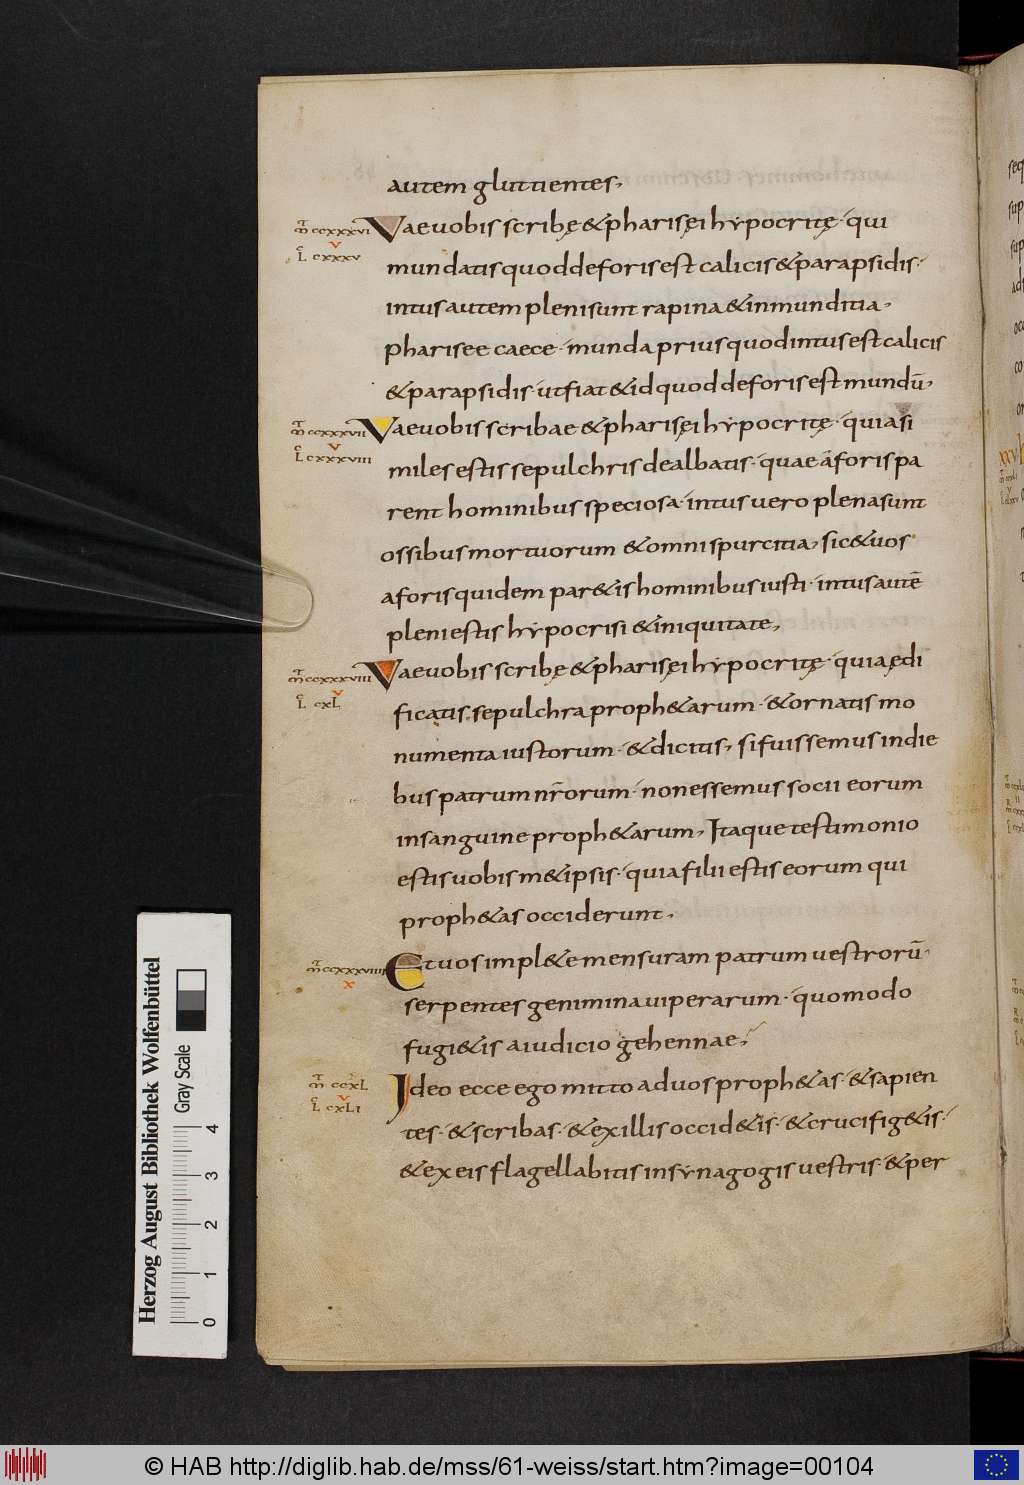 autem gluttientes,
mt ccxxxvi
v
lc cxxxv
Vaeuobis scribę & pharisęi hypocritę· qui
mundatis quod deforis est calicis & parapsidis·
intus autem pleni sunt rapina & inmunditia,
pharisee caece· munda prius quod intus est calicis
& parapsidis· ut fiat & id quod deforis est mundū,
mt ccxxxvii
v
lc cxxxviii
Vaeuobis scribae & pharisęi hypocritę· quia si
miles estis sepulchris dealbatis· quae áforis pa
rent hominibus speciosa· intus uero plena sunt
ossibus mortuorum & omni spurcitia, sic & uos
aforis quidem par&is hominibus iusti· intus autē
pleni estis hypocrisi & iniquitate,
mt ccxxxviii
v
lc cxl
Vaeuobis scribę & pharisęi hypocritę· quia ędi
ficatis sepulchra proph&arum· & ornatis mo
numenta iustorum· & dicitis, si fuissemus in die
bus patrum nr̄orum· non essemus socii eorum
in sanguine proph&arum, Itaque testimonio
estis uobis m&ipsis· quia filii estis eorum qui
proph&as occiderunt,
mt ccxxxviiii
x
Et uos impl&e mensuram patrum uestrorū·
serpentes genimina uiperarum· quomodo
fugi&is a iudicio gehennae,
mt ccxl
v
lc cxli
Ideo ecce ego mitto ad uos proph&as· & sapien
tes· & scribas· & ex illis occid&is· & crucifig&is·
& ex eis flagellabitis in synagogis uestris· & per
Herzog August Bibliothek Wolfenbüttel
Gray Scale
0 1 2 3 4
© HAB http://diglib.hab.de/mss/61-weiss/start.htm?image=00104